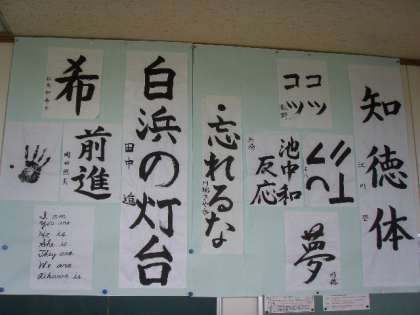 知徳体
コツ
コツ
池中和
反応
夢
・忘れるな
白浜の灯台
田中
希
前進
I am
You are
He is
She is
They are
We are